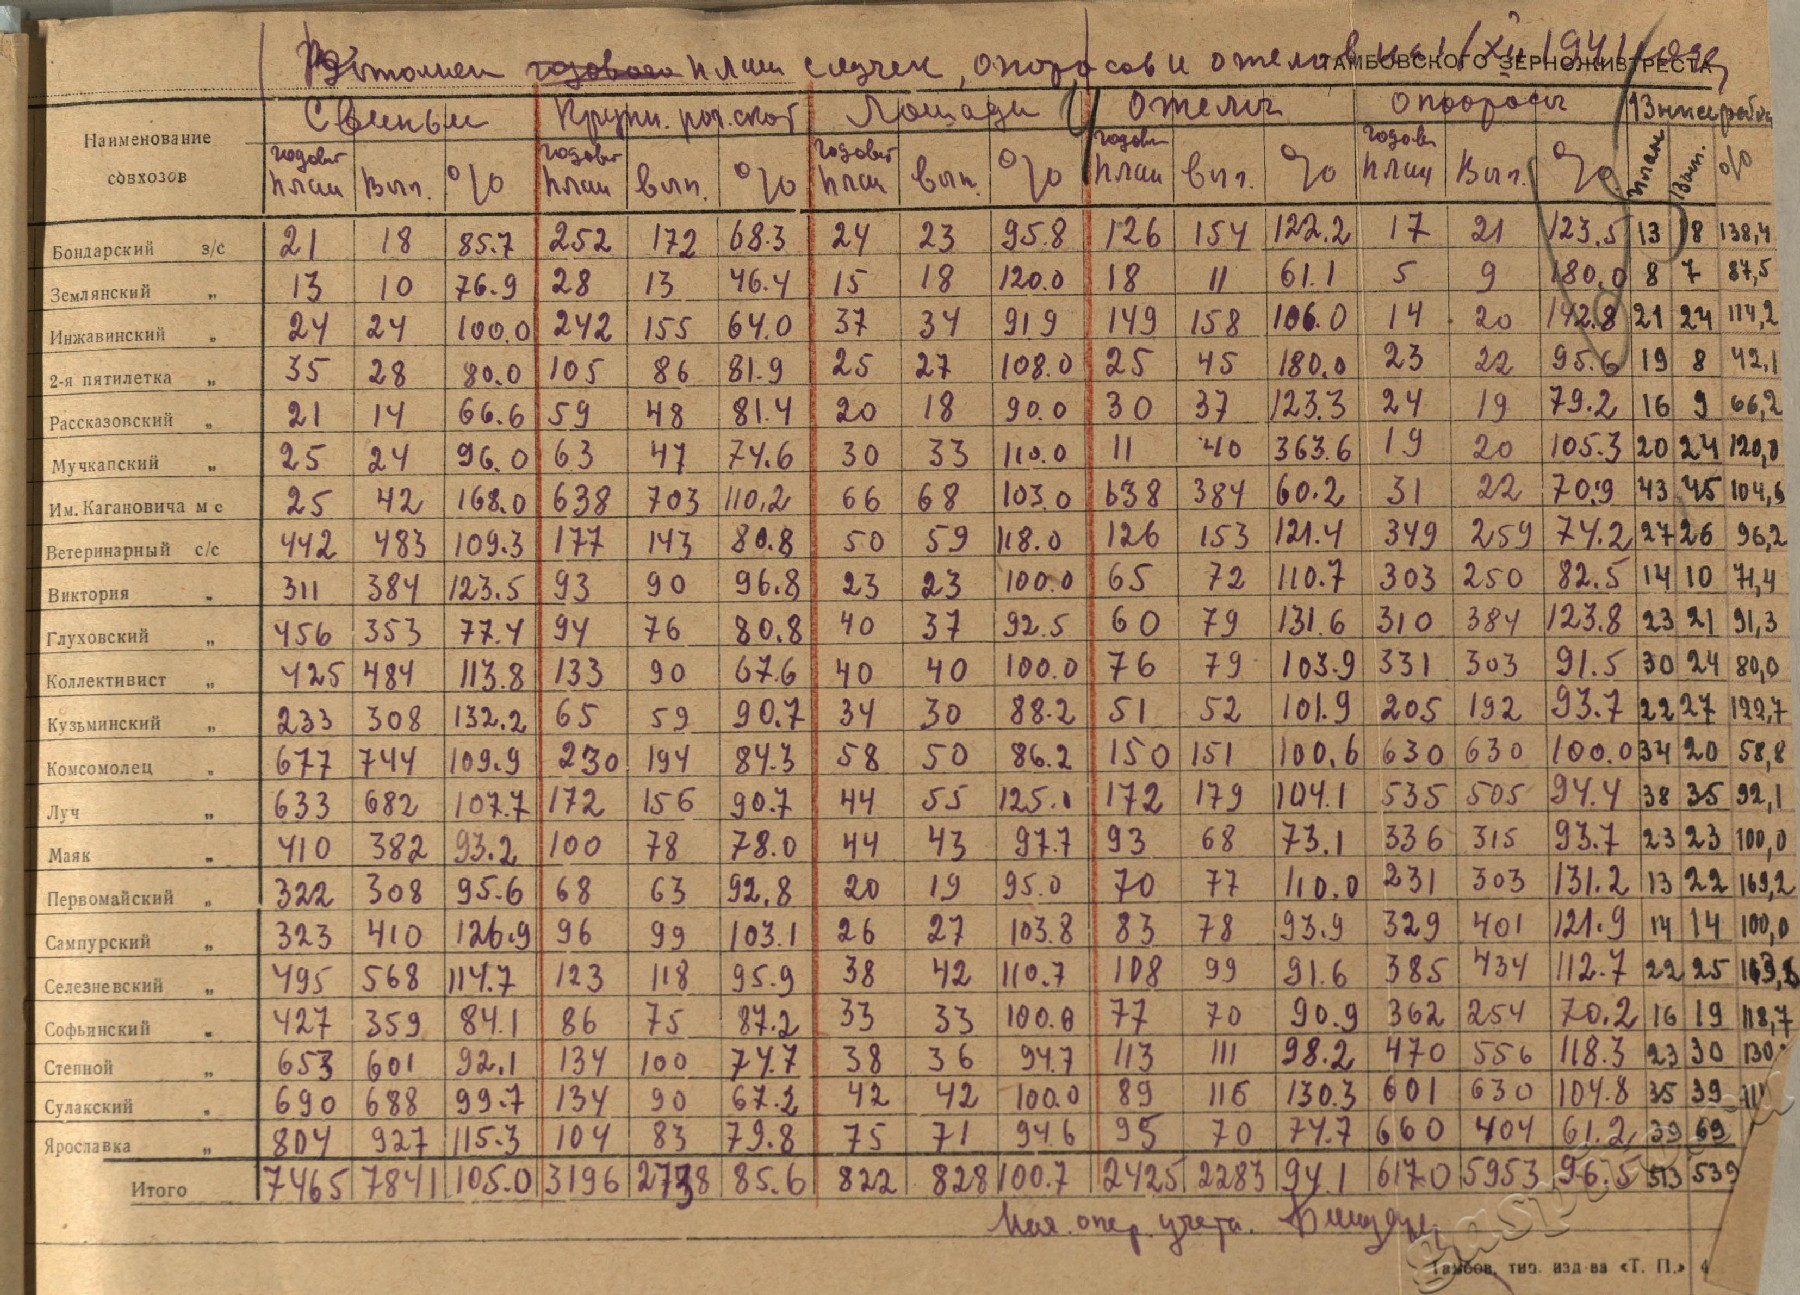 Выполнен годового план случек, опоросов и отелов на 1/XII 1941 года
ТАМБОВСКОГО ЗЕРНОЖИВТРЕСТА
Наименование совхозов Свиньи Крупн. рог. скот Лошади Отелы Опоросы
годовой план вып. % годовой план вып. % годовой план вып. % годовой план вып. % годовой план вып. % план вып. %
Бондарский з/с 21 18 85.7 252 172 68.3 24 23 95.8 126 154 122.2 17 21 123.5 13 18 138,4
Землянский „ 13 10 76.9 28 13 46.4 15 18 120.0 18 11 61.1 5 9 180.0 8 7 87,5
Инжавинский „ 24 24 100.0 242 155 64.0 37 34 91.9 149 158 106.0 14 20 142.8 21 24 114,2
2-я пятилетка „ 35 28 80.0 105 86 81.9 25 27 108.0 25 45 180.0 23 22 95.6 19 8 42,1
Рассказовский „ 21 14 66.6 59 48 81.4 20 18 90.0 30 37 123.3 24 19 79.2 16 9 66,2
Мучкапский „ 25 24 96.0 63 47 74.6 30 33 110.0 11 40 363.6 19 20 105.3 20 24 120,0
Им. Кагановича м с 25 42 168.0 638 703 110.2 66 68 103.0 638 384 60.2 31 22 70.9 43 45 104,6
Ветеринарный с/с 442 483 109.3 177 143 80.8 50 59 118.0 126 153 121.4 349 259 74.2 27 26 96,2
Виктория „ 311 384 123.5 93 90 96.8 23 23 100.0 65 72 110.7 303 250 82.5 14 10 71,4
Глуховский „ 456 353 77.4 94 76 80.8 40 37 92.5 60 79 131.6 310 384 123.8 23 21 91,3
Коллективист „ 425 484 113.8 133 90 67.6 40 40 100.0 76 79 103.9 331 303 91.5 30 24 80,0
Кузьминский „ 233 308 132.2 65 59 90.7 34 30 88.2 51 52 101.9 205 192 93.7 22 27 122,7
Комсомолец „ 677 744 109.9 230 194 84.3 58 50 86.2 150 151 100.6 630 630 100.0 34 20 58,8
Луч „ 633 682 107.7 172 156 90.7 44 55 125.0 172 179 104.1 535 505 94.4 38 35 92,1
Маяк „ 410 382 93.2 100 78 78.0 44 43 97.7 93 68 73.1 336 315 93.7 23 23 100,0
Первомайский „ 322 308 95.6 68 63 92.8 20 19 95.0 70 77 110.0 231 303 131.2 13 22 169,2
Сампурский „ 323 410 126.9 96 99 103.1 26 27 103.8 83 78 93.9 329 401 121.9 14 14 100,0
Селезневский „ 495 568 114.7 123 118 95.9 38 42 110.7 108 99 91.6 385 434 112.7 22 25 113,6
Софьинский „ 427 359 84.1 86 75 87.2 33 33 100.0 77 70 90.9 362 254 70.2 16 19 118,7
Степной „ 653 601 92.1 134 100 74.7 38 36 94.7 113 111 98.2 470 556 118.3 23 30 130
Сулакский „ 690 688 99.7 134 90 67.2 42 42 100.0 89 116 130.3 601 630 104.8 35 39 111
Ярославка „ 804 927 115.3 104 83 79.8 75 71 94.6 95 70 74.7 660 404 61.2 39 69
Итого 7465 7841 105.0 3196 2738 85.6 822 828 100.7 2425 2283 94.1 6170 5953 96.5 513 539
Нач. опер. учета.
gaspito.ru
Тамбов, тип. изд-ва «Т. П.» 4